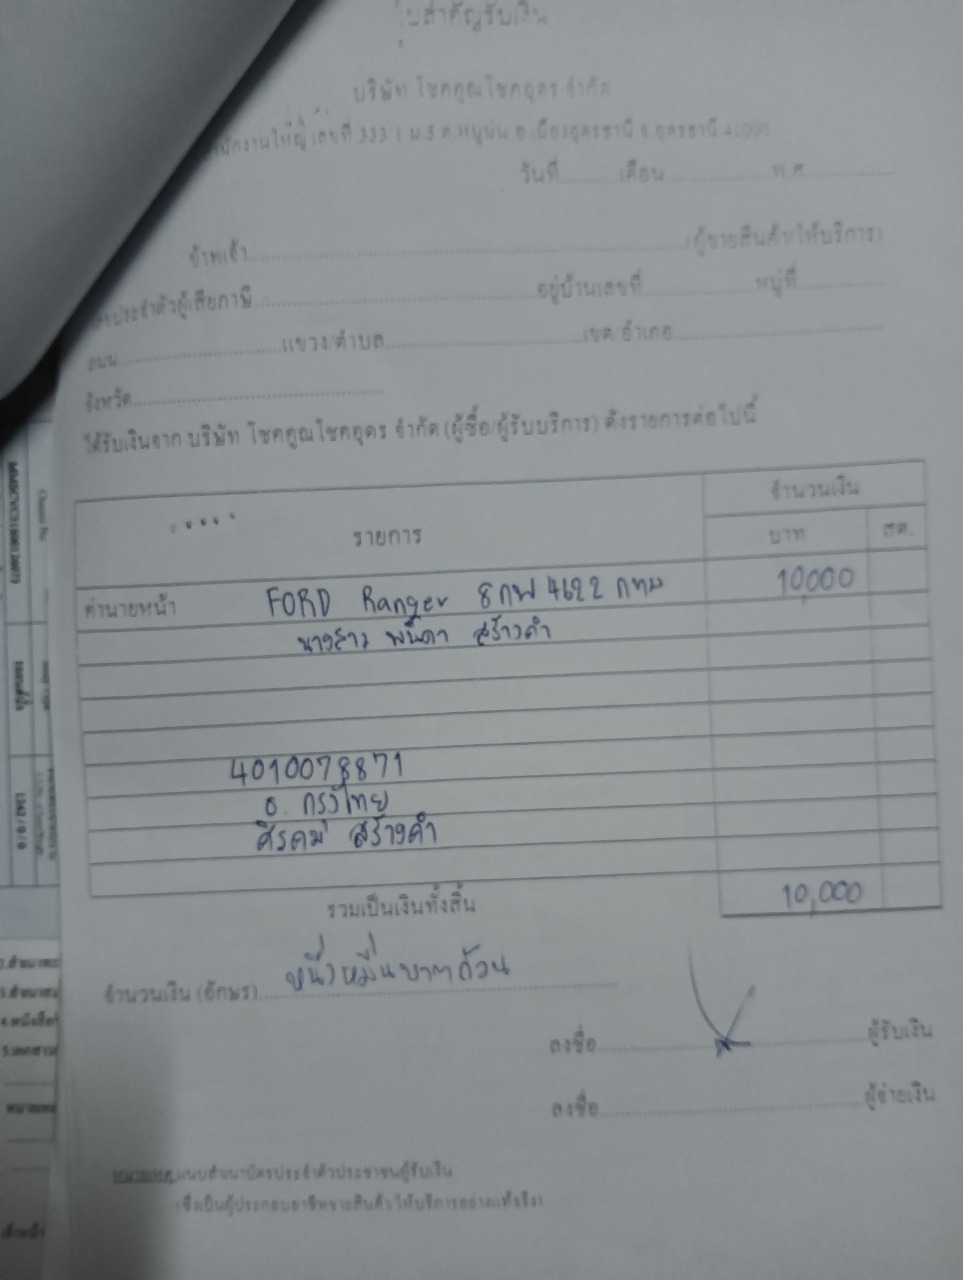 ใบสำคัญรับเงิน
บริษัท โชคคูณโชคอุดร จำกัด
สำนักงานใหญ่ เลขที่ 333 ม.5 ต.หมูม่น อ.เมืองอุดรธานี จ.อุดรธานี 41000
วันที่..........เดือน....................พ.ศ.................
ข้าพเจ้า..................................................(ผู้ขายสินค้า/ให้บริการ)
ประจำตัวผู้เสียภาษี..............................อยู่บ้านเลขที่....................หมู่ที่...............
ถนน..............................แขวง/ตำบล..............................เขต/อำเภอ..............................
จังหวัด........................................
ได้รับเงินจาก บริษัท โชคคูณโชคอุดร จำกัด (ผู้ซื้อ/ผู้รับบริการ) ดังรายการต่อไปนี้
รายการ จำนวนเงิน
บาท สต.
ค่านายหน้า FORD Ranger 8กฬ 4622 กทม 10,000
นางสาว พนิดา สร้างคำ
4010078871
ธ. กรุงไทย
ศิรคม สร้างคำ
รวมเป็นเงินทั้งสิ้น 10,000
จำนวนเงิน (อักษร) หนึ่งหมื่นบาทถ้วน
ลงชื่อ..............................ผู้รับเงิน
ลงชื่อ..............................ผู้จ่ายเงิน
หมายเหตุ แนบสำเนาบัตรประจำตัวประชาชนผู้รับเงิน
(ซึ่งเป็นผู้ประกอบอาชีพขายสินค้า/ให้บริการอย่างแท้จริง)